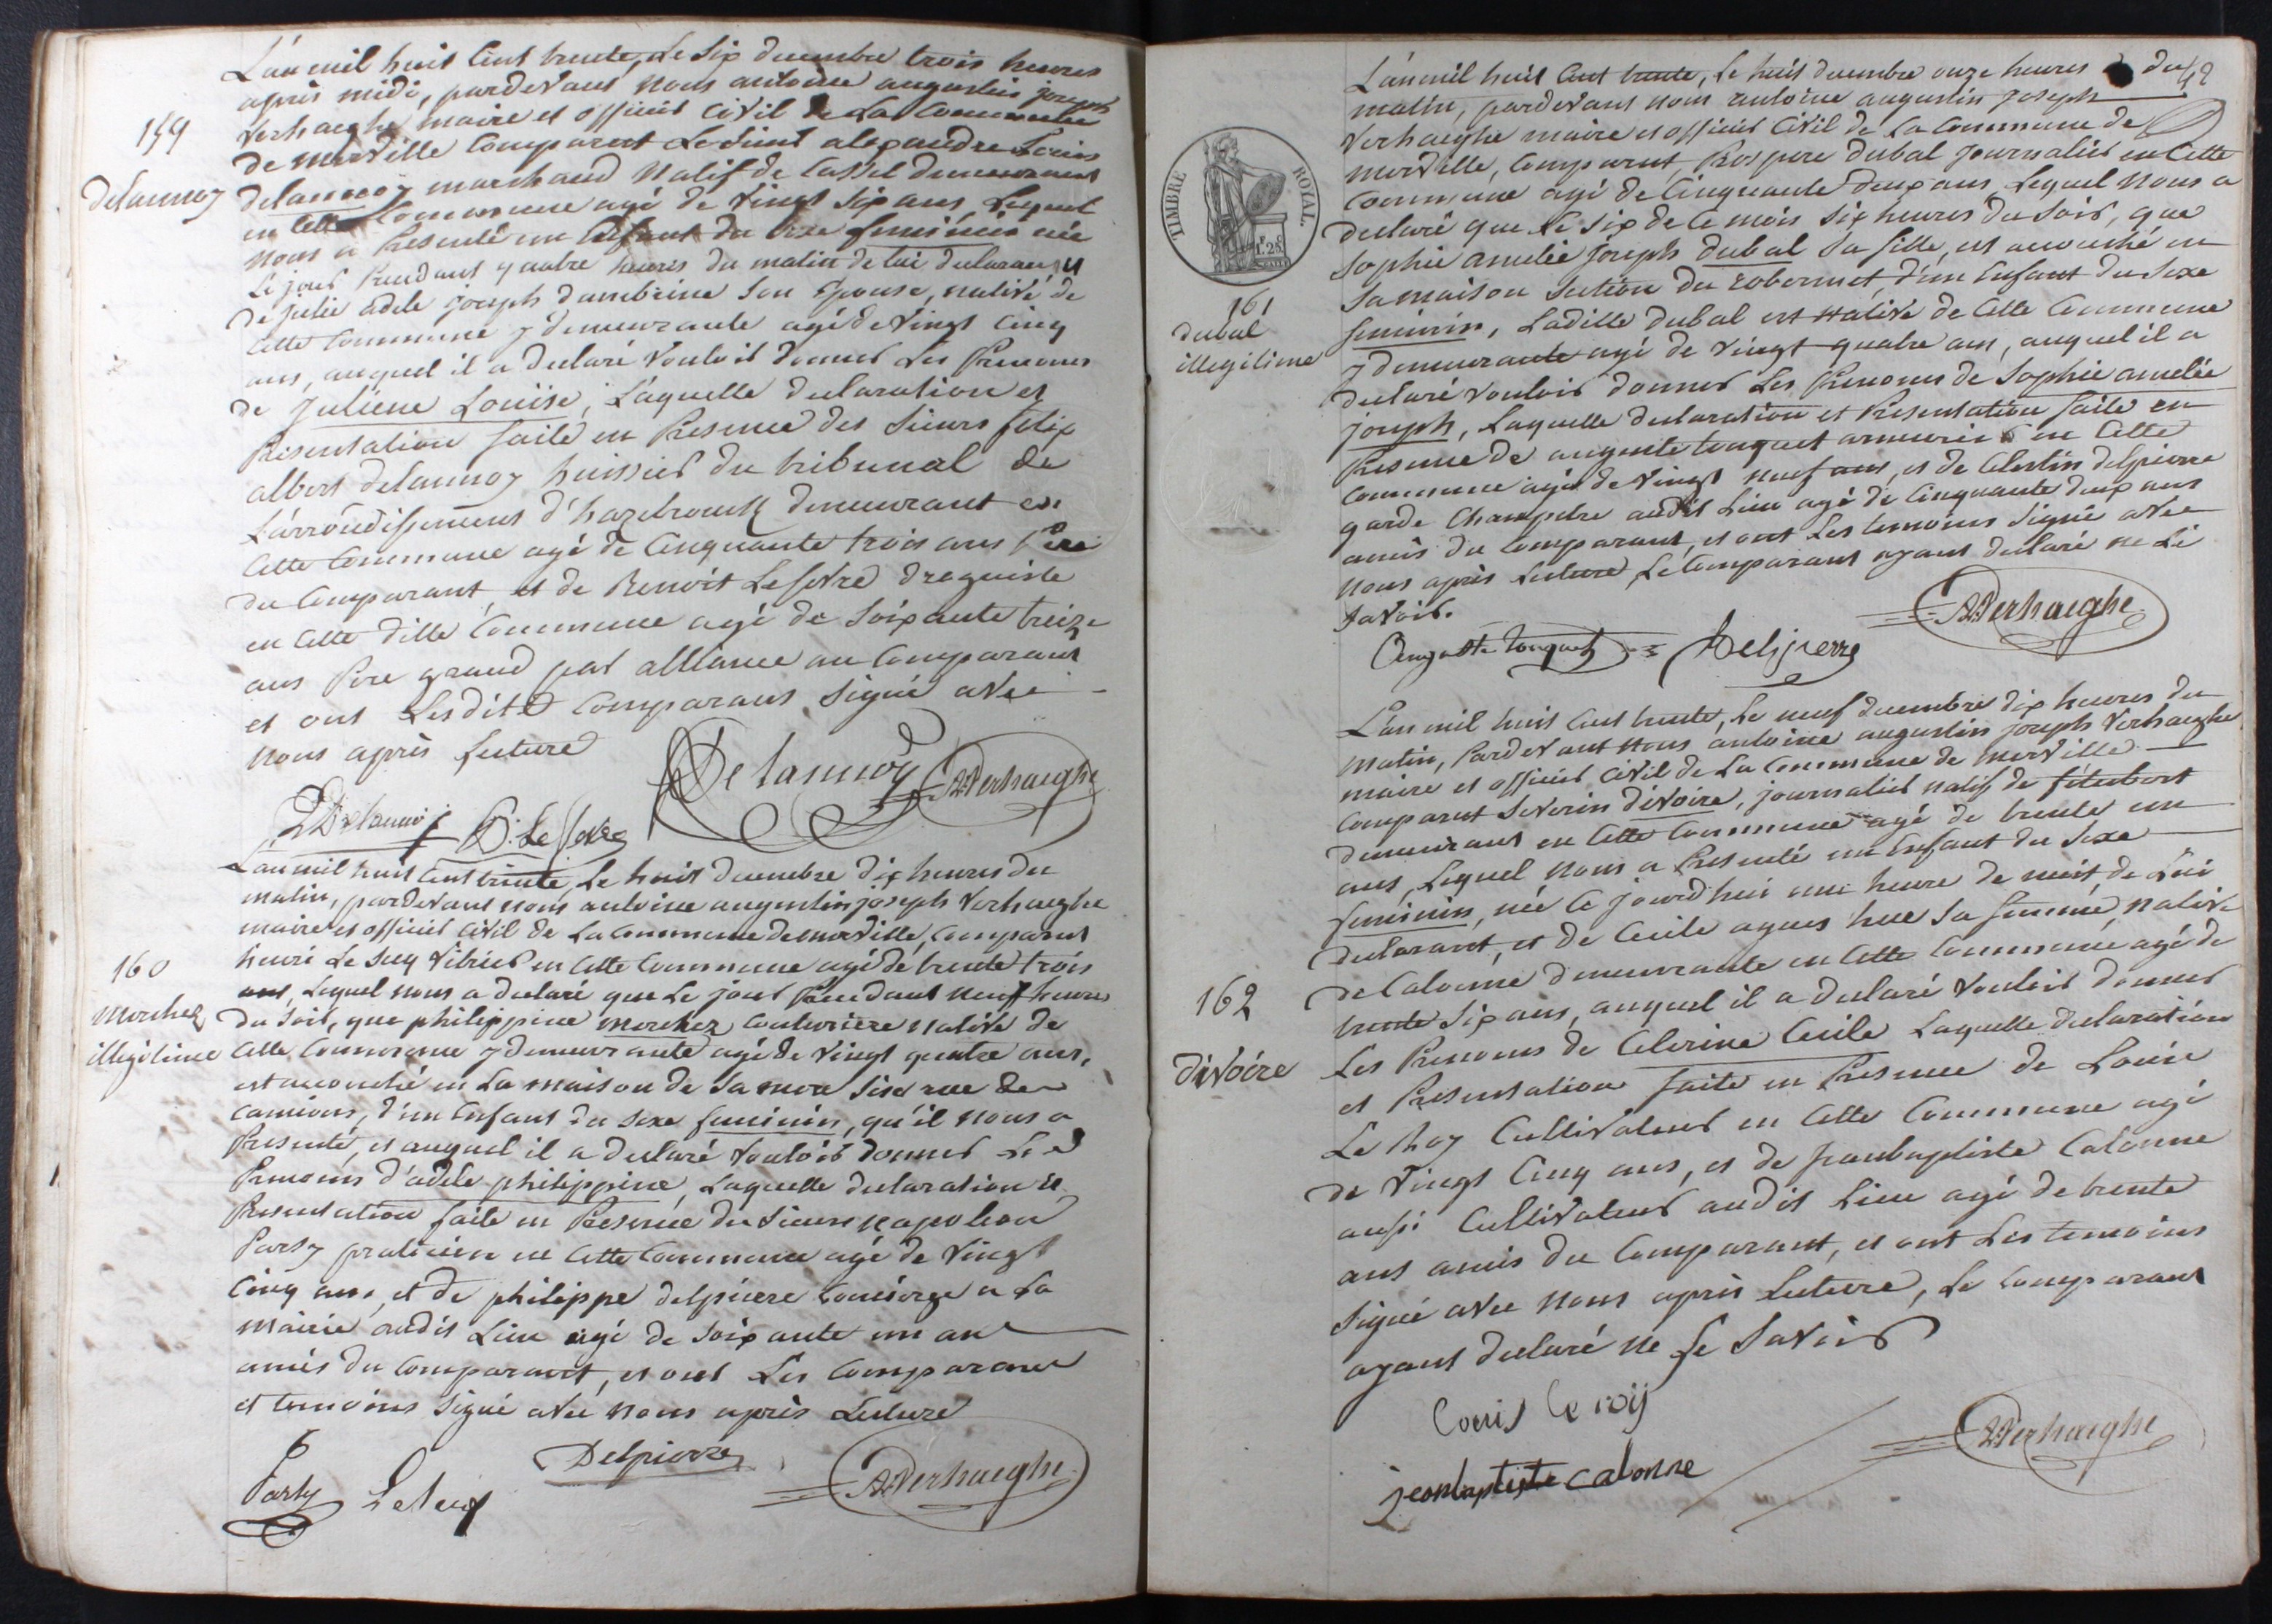 159
delannoy
L'an mil huit Cent trente, Le Six decembre trois heures
après midi, pardevant Nous antoine augustin joseph
Verhaeghe maire et officier Civil de La Commune
de merville Comparent Le Sieur alexandre Louis
delannoy marchand Natif de Cassel demeurant
en Cette Commune agé de Vingt Six ans, Lequel
Nous a Presenté un Enfant du Sexe feminin née
Cé jour Pendant quatre heures du matin de lui declarant, et
de julie adele joseph dambrine Son Epouse, native de
Cette Commune y demeurante agé de Vingt Cinq
ans, auquel il a declaré Vouloir donner Les Prenoms
de Juliene Louise, Laquelle declaration et
Presentation faite en Presence des Sieurs felix
albert delannoy huissier du tribunal de
L'arrondissement d'hazebrouck demeurant en
Cette Commune agé de Cinquante trois ans Pere
du Comparant, et de Benoit Lefevre droguiste
en Cette ditte Commune agé de Soixante treize
ans Pere grand par alliance au Comparant
et ont Lesdits Comparans Signé avec
Nous après Lecture
Delannoy AVerhaeghe
Delannoy B. Lefevre
160
Morchez
illegitime
L'an mil huit Cent trente, Le huit decembre dix heures du
matin, pardevant nous antoine augustin joseph Verhaeghe
maire et officier Civil de La Commune de merville, Comparant
henri Le Sucq Vitrier en Cette Commune agé de trente trois
ans, Lequel nous a declaré que Le jour Pendant neuf heures
du Soir, que philippine morchez Couturiere native de
Cette Commune y demeurante agé de Vingt quatre ans,
est accouché en La maison de Sa mere Sise rue de
Camions, d'un Enfant du Sexe feminin, qu'il nous a
Presenté, et auquel il a declaré Vouloir donner Les
Prenoms d'adele philippine, Laquelle declaration et
Presentation faite en Presence du Sieur napoleon
Parsy praticien en Cette Commune agé de Vingt
Cinq ans, et de philippe delpierre Concierge a La
Mairie audit Lieu agé de Soixante un an
amis du Comparant, et ont Les Comparans
et temoins Signé avec Nous après Lecture
Parsy Lesucq Delpierre AVerhaeghe
42
TIMBRE ROYAL
1f. 25
161
dubal
illegitime
L'an mil huit Cent trente, Le huit decembre onze heures du
matin, pardevant nous antoine augustin joseph
Verhaeghe maire et officier Civil de La Commune de
merville, Comparent, Prospere dubal journalier en Cette
Commune agé de Cinquante deux ans, Lequel Nous a
declaré que Le Six de Ce mois Six heures du Soir, que
Sophie amelie joseph dubal Sa fille, est accouché en
Sa maison Section du robermet, d'un Enfant du Sexe
feminin, Ladille dubal est Native de Cette Commune
y demeurante agé de Vingt quatre ans, auquel il a
declaré Vouloir donner Les Prenoms de Sophie amelie
joseph, Laquelle declaration et Presentation faite en
Presence de auguste touquet armurier en Cette
Commune agé de Vingt neuf ans, et de Celestin delpierre
garde Champetre audit Lieu agé de Cinquante deux ans
amis du Comparant, et ont Les temoins Signé avec
Nous après Lecture, Le Comparant ayant declaré ne Le
Savoir.
Auguste touquet Delpierre AVerhaeghe
162
divoire
L'an mil huit Cent trente, Le neuf decembre dix heures du
matin, Pardevant Nous antoine augustin joseph Verhaeghe
maire et officier Civil de La Commune de merville
Comparent Severin divoire, journalier natif de
demeurant en Cette Commune agé de trente un
ans, Lequel Nous a Presenté un Enfant du Sexe
feminin, née Ce jourd'hui une heure de nuit de Lui
declarant, et de Cecile agnes hue Sa femme, native
de Calonne demeurante en Cette Commune agé de
trente Six ans, auquel il a declaré Vouloir donner
Les Prenoms de Celerine Cecile Laquelle declaration
et Presentation faite en Presence de Louis
Le Roy Cultivateur en Cette Commune agé
de Vingt Cinq ans, et de jeanbaptiste Calonne
aussi Cultivateur audit Lieu agé de trente
ans amis du Comparant, et ont Les temoins
Signé avec Nous après Lecture, Le Comparant
ayant declaré ne Le Savoir
Louis Le roij
jeanbaptiste calonne AVerhaeghe